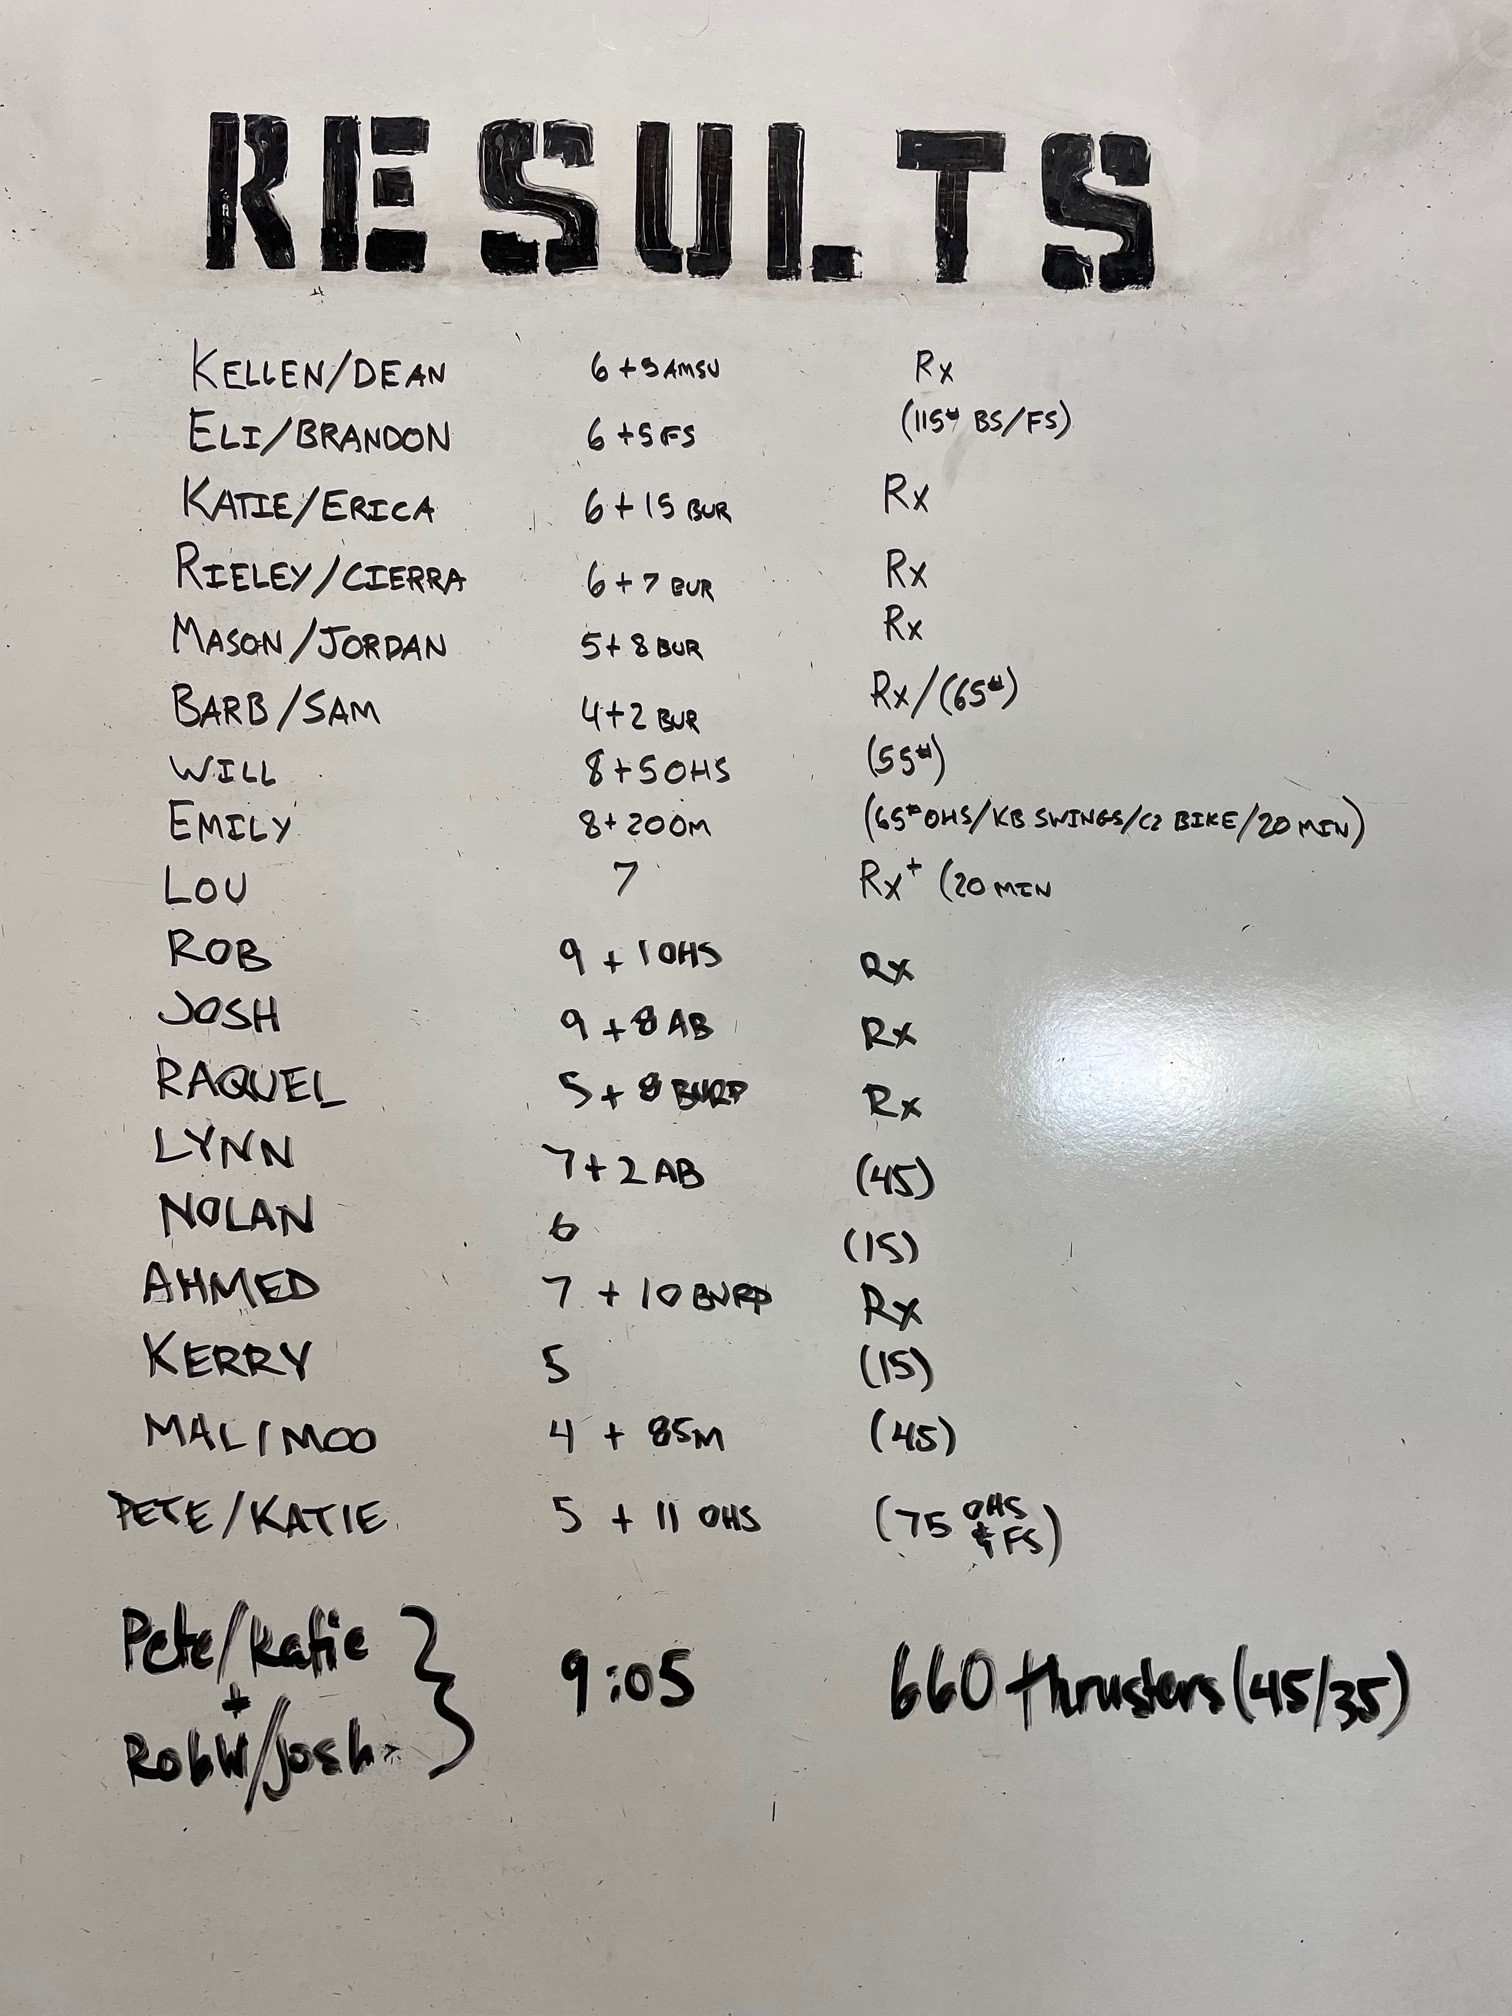 RESULTS
KELLEN/DEAN 6 + 9 AMSU Rx
ELI/BRANDON 6 + 5 FS (115# BS/FS)
KATIE/ERICA 6 + 15 BUR Rx
RIELEY/CIERRA 6 + 7 BUR Rx
MASON/JORDAN 5 + 8 BUR Rx
BARB/SAM 4 + 2 BUR Rx/(65#)
WILL 8 + 5 OHS (55#)
EMILY 8 + 200M (65# OHS/KB SWINGS/C2 BIKE/20 MIN)
LOU 7 Rx+ (20 MIN
ROB 9 + 1 OHS Rx
JOSH 9 + 8 AB Rx
RAQUEL 5 + 8 BURP Rx
LYNN 7 + 2 AB (45)
NOLAN 6 (15)
AHMED 7 + 10 BURP Rx
KERRY 5 (15)
MAL/MOO 4 + 85M (45)
PETE/KATIE 5 + 11 OHS (75 OHS & FS)
Pete/Katie
+
RobW/Josh } 9:05 660 thrusters (45/35)